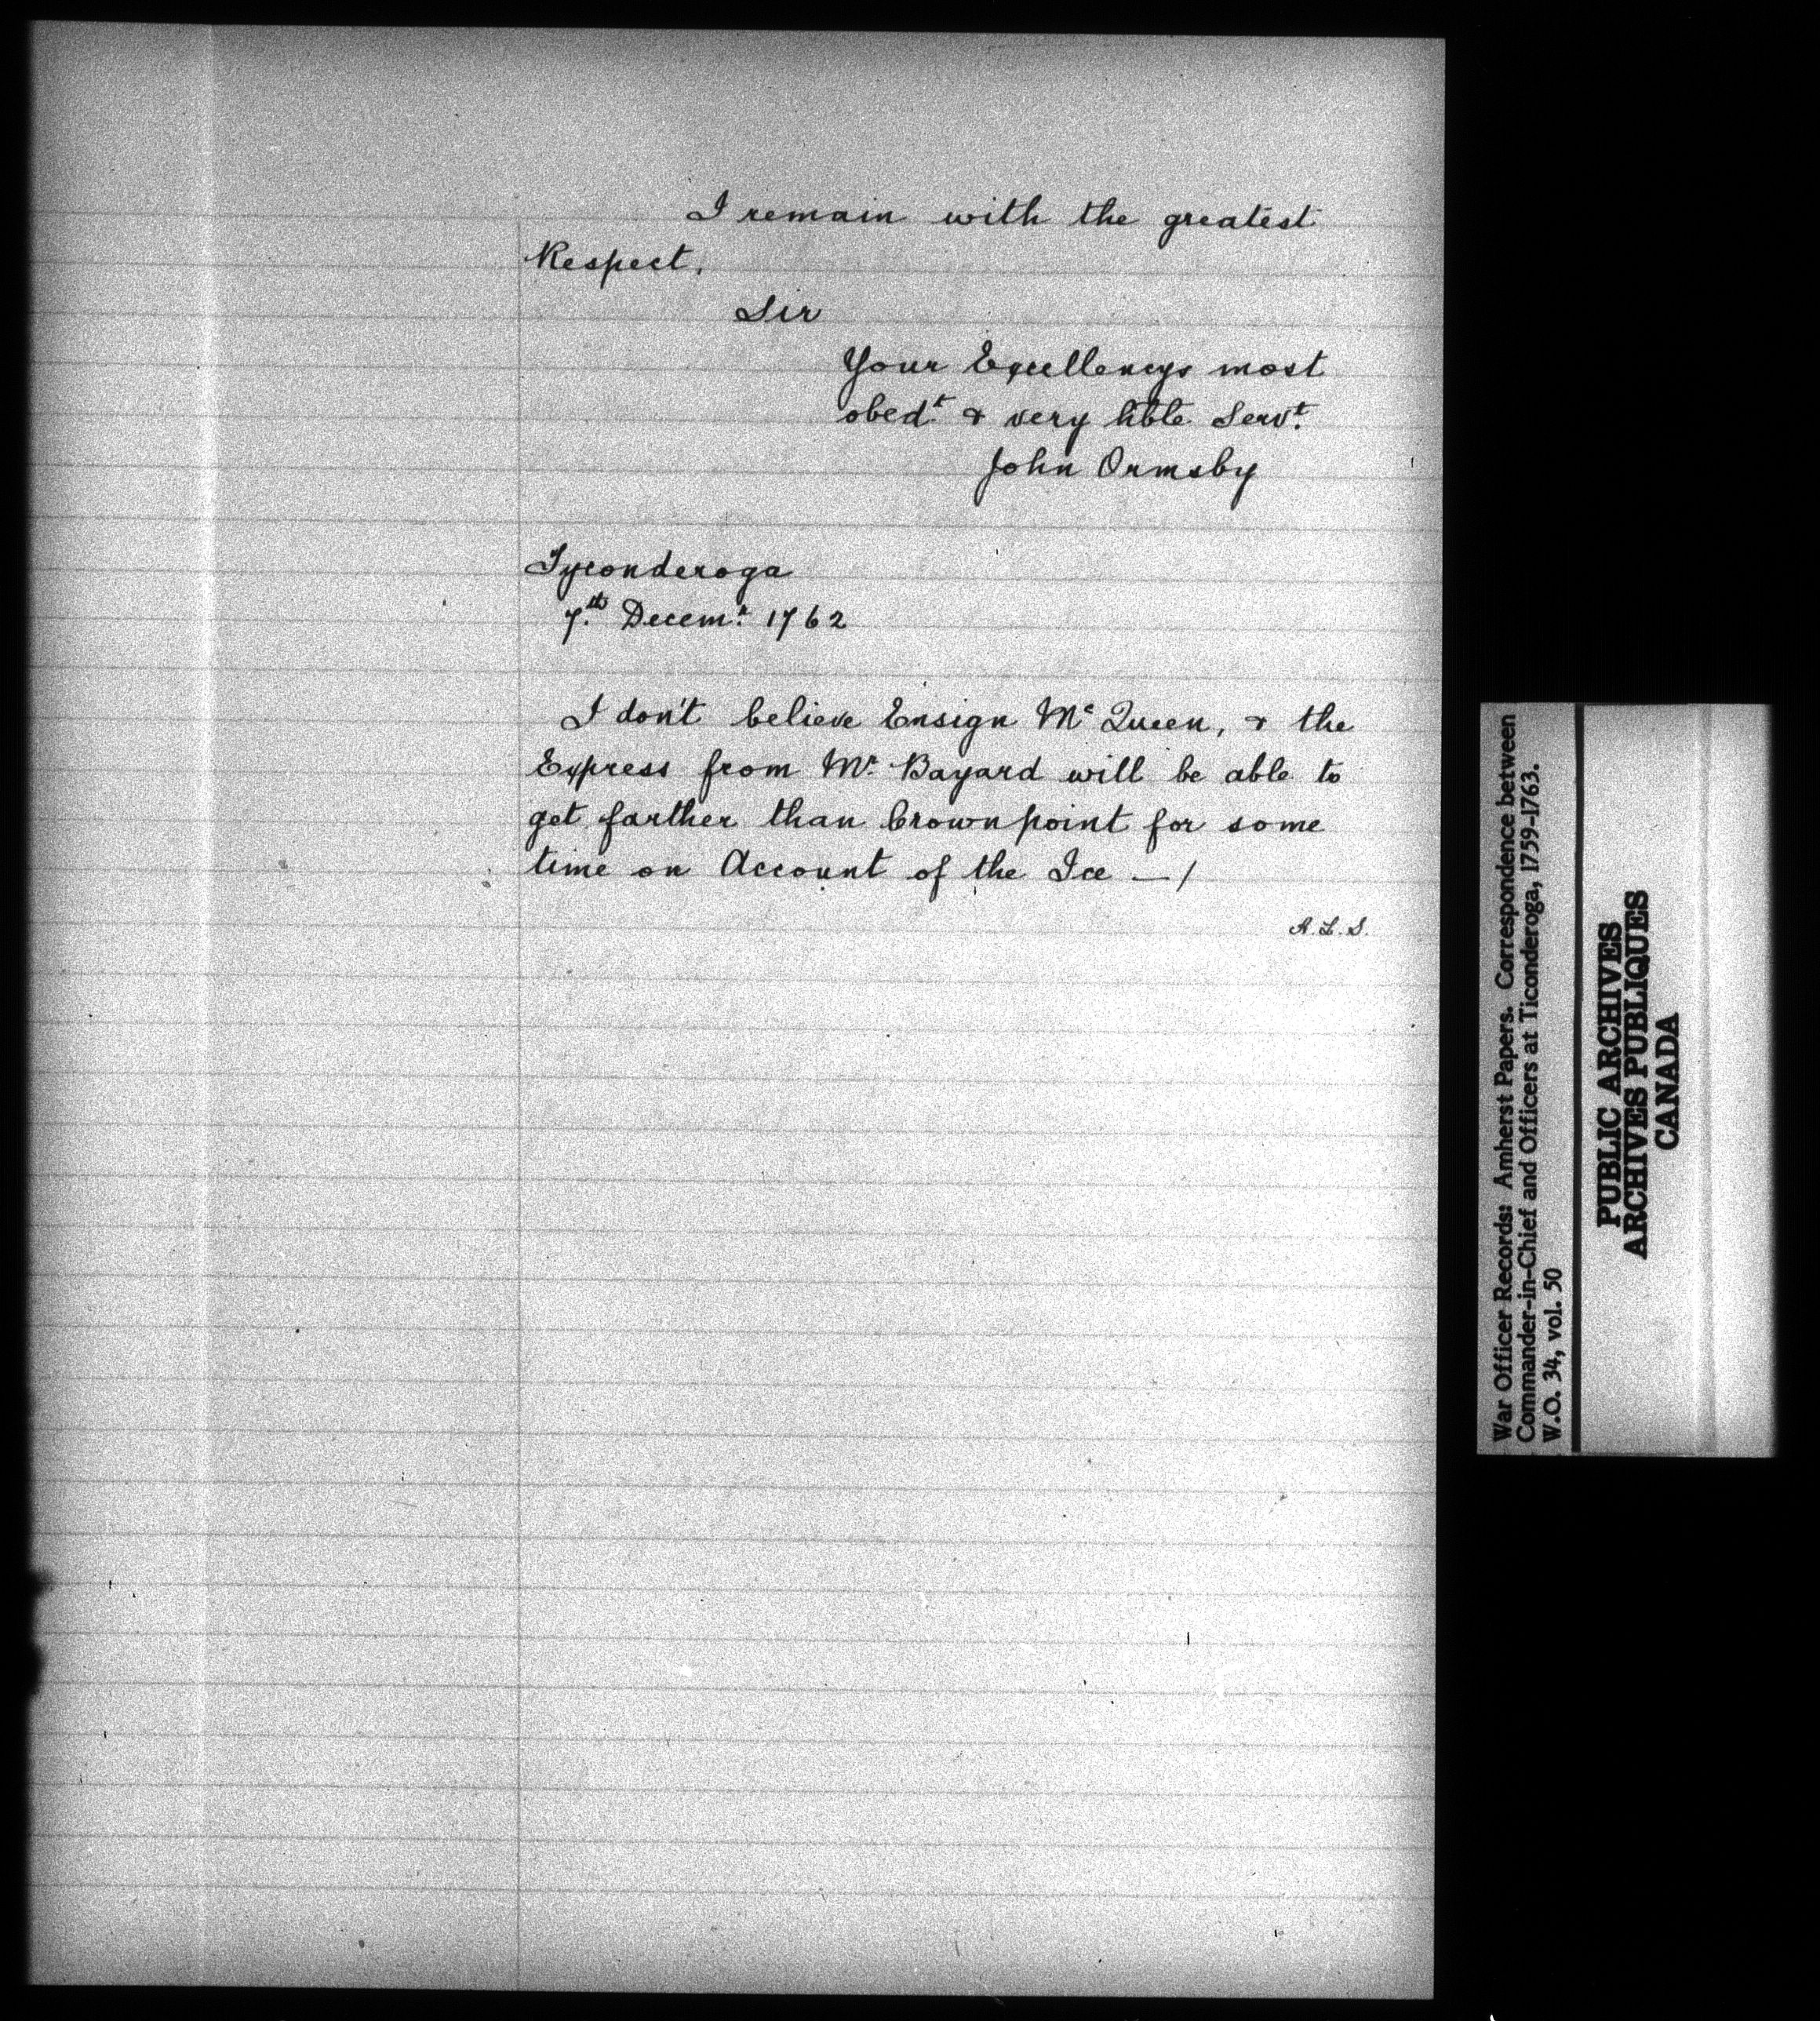 I remain with the greatest
Respect,
Sir
Your Excellencys most
obedt & very hble Servt.
John Ormsby
Tyconderoga
7th Decemr 1762
I don't believe Ensign Mc Queen, & the
Express from Mr. Bayard will be able to
get farther than Crown point for some
time on Account of the Ice — /
A.L.S.
War Officer Records: Amherst Papers. Correspondence between
Commander-in-Chief and Officers at Ticonderoga, 1759-1763.
W.O. 34, vol. 50
PUBLIC ARCHIVES
ARCHIVES PUBLIQUES
CANADA